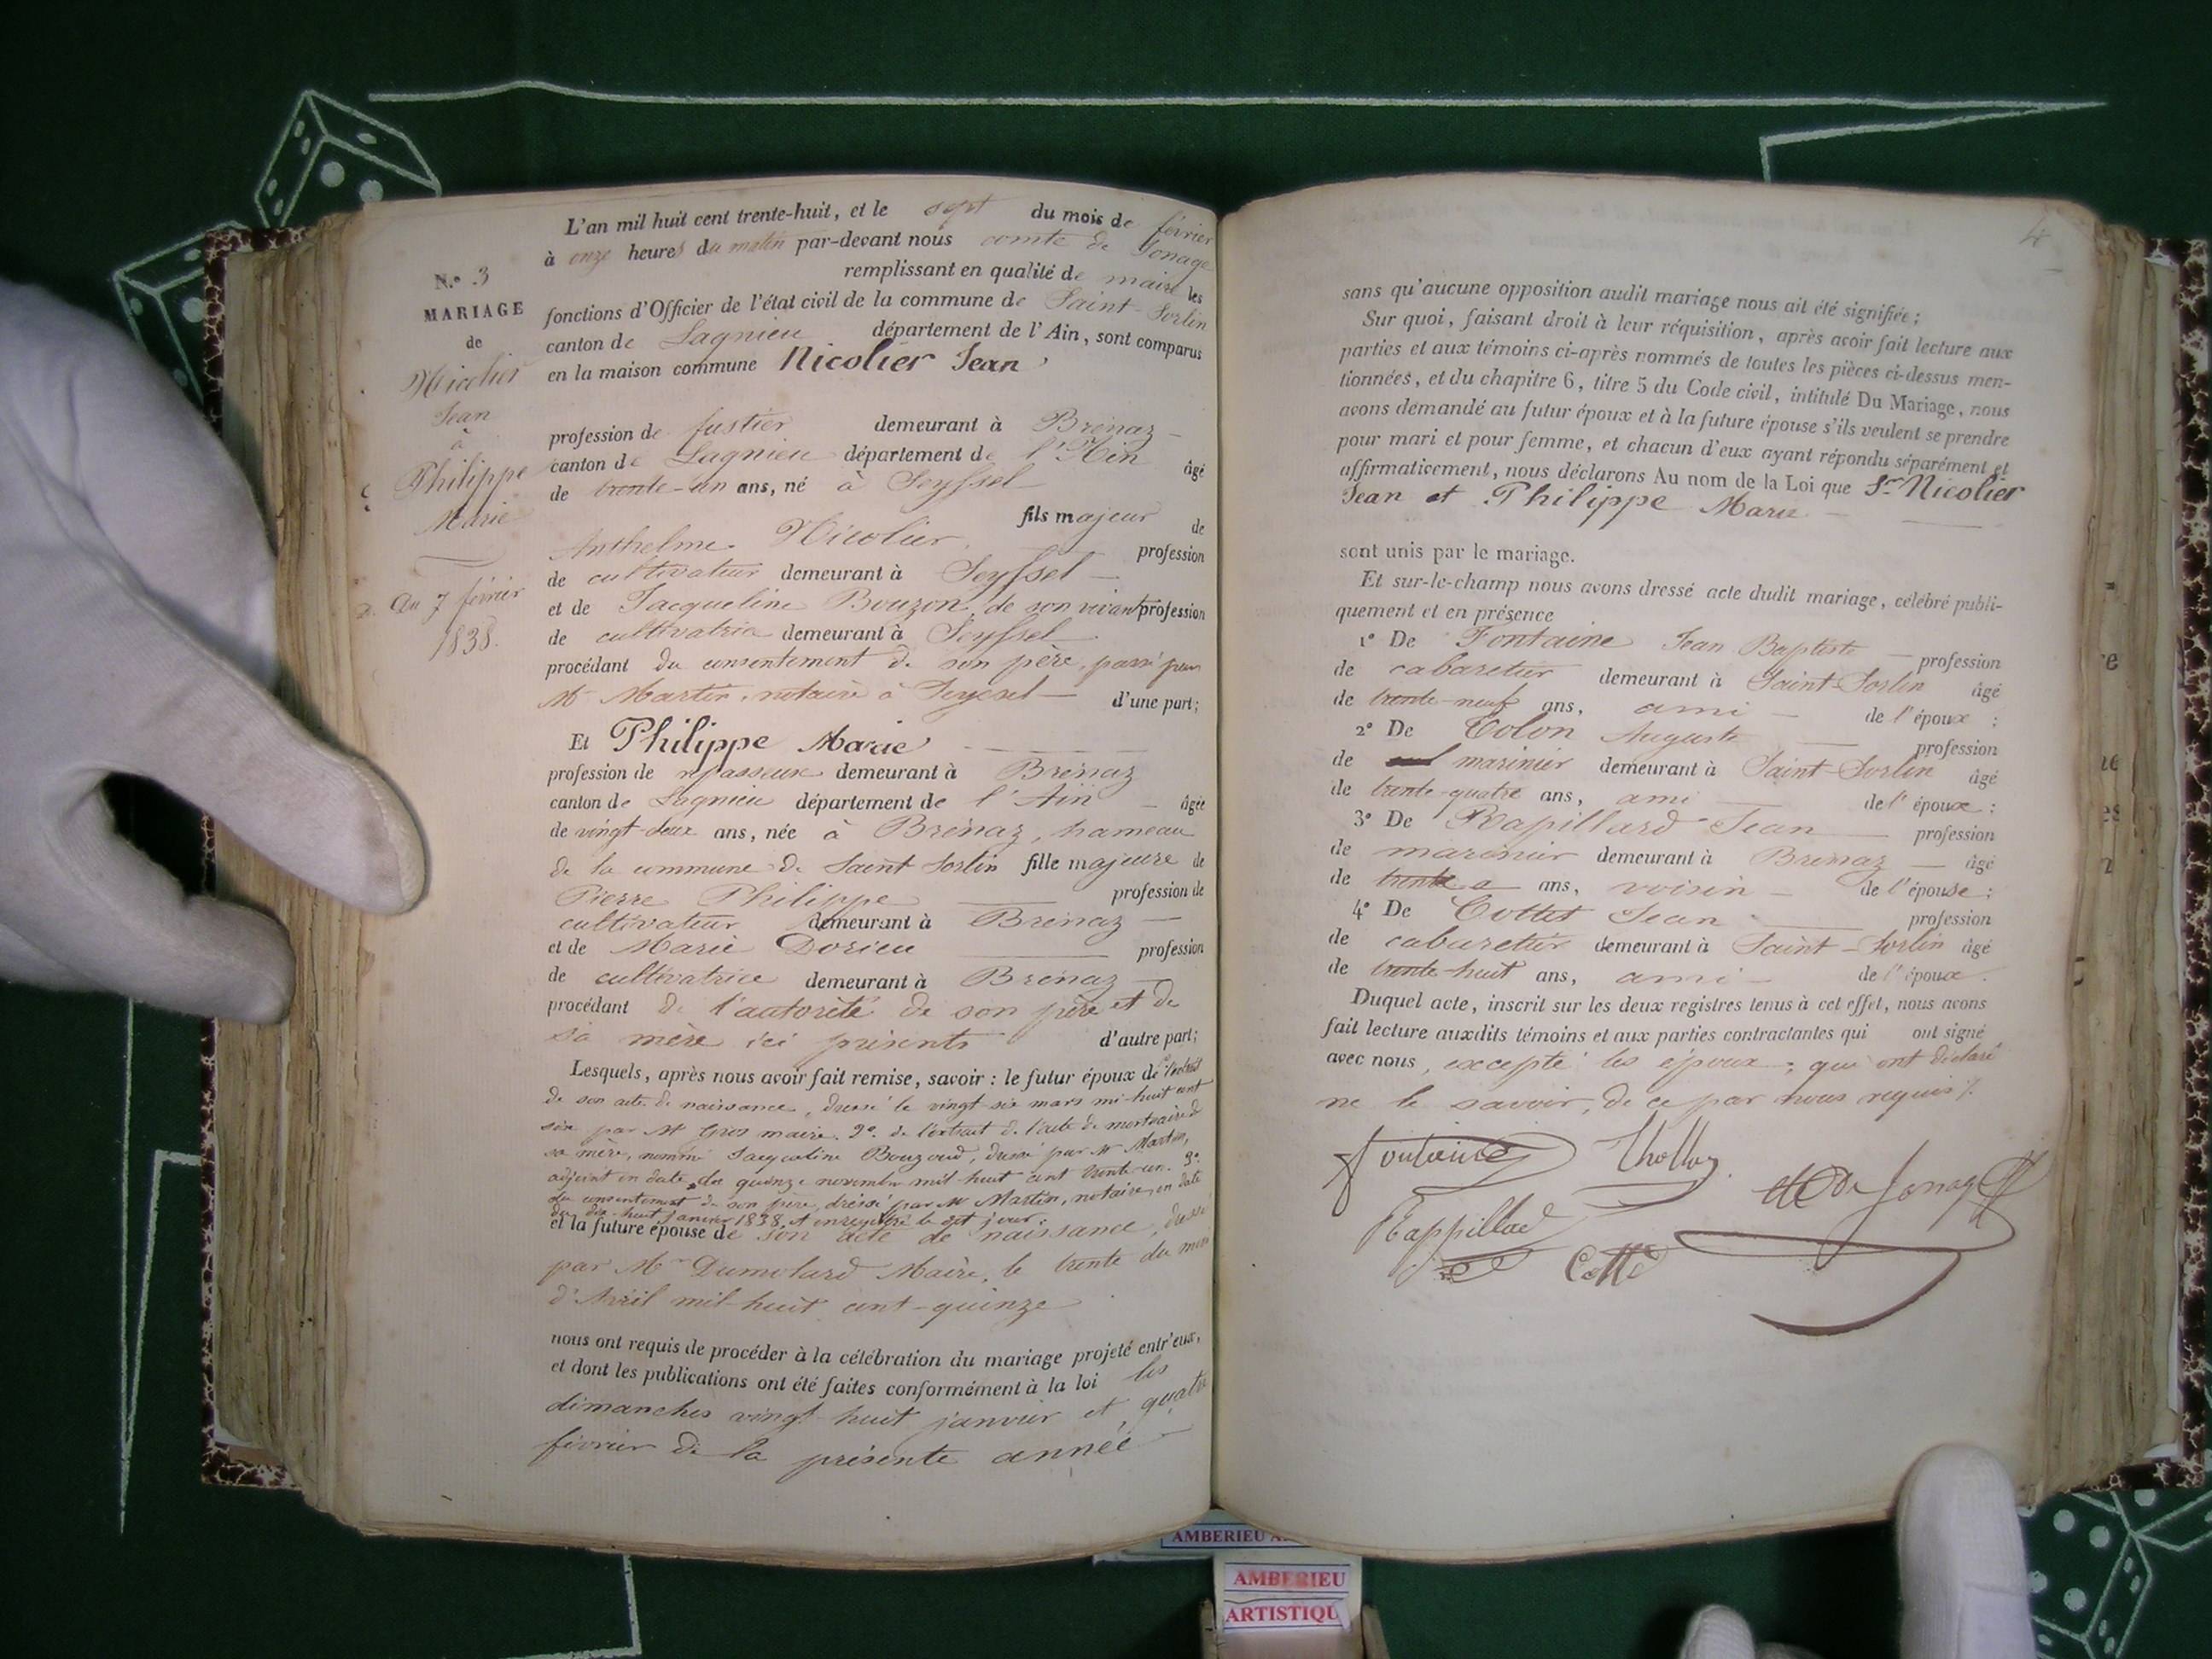 L'an mil huit cent trente-huit, et le sept du mois de février
à onze heures du matin par-devant nous comte de Jonage
remplissant en qualité de maire les
fonctions d'Officier de l'état civil de la commune de Saint-Sorlin
canton de Lagnieu département de l'Ain, sont comparus
en la maison commune Nicolier Jean
profession de fustier demeurant à Brénaz
canton de Lagnieu département de l'Ain âgé
de trente-un ans, né à Seyssel
fils majeur de
Anthelme Nicolier profession
de cultivateur demeurant à Seyssel
et de Jacqueline Bouzon, de son vivant profession
de cultivatrice demeurant à Seyssel
procédant du consentement de son père, passé par
Mr Martin, notaire à Seyssel d'une part;
Et Philippe Marie
profession de repasseuse demeurant à Brénaz
canton de Lagnieu département de l'Ain âgée
de vingt-deux ans, née à Brénaz, hameau
de la commune de Saint Sorlin fille majeure de
Pierre Philippe profession de
cultivateur demeurant à Brénaz
et de Marie Dorieu profession
de cultivatrice demeurant à Brénaz
procédant de l'autorité de son père et de
sa mère ici présents d'autre part;
Lesquels, après nous avoir fait remise, savoir : le futur époux de l'extrait
de son acte de naissance, dressé le vingt-six mars mil-huit cent
six par Mr Gros maire. 2º. de l'extrait de l'acte de mortuaire de
sa mère, nommé Jacqueline Bouzoud, dressé par Mr Martin,
adjoint en date du quinze novembre mil huit cent trente-un. 3º.
du consentement de son père, dressé par Mr Martin, notaire, en date
du dix-huit janvier 1838, et enregistré le dit jour.
et la future épouse de son acte de naissance, dressé
par Mr Dumolard Maire, le trente du mois
d'Avril mil-huit cent-quinze
nous ont requis de procéder à la célébration du mariage projeté entr'eux,
et dont les publications ont été faites conformément à la loi les
dimanches vingt-huit janvier et quatre
février de la présente année
N.º 3
MARIAGE
de
Nicolier
Jean
à
Philippe
Marie
Du 7 février
1838.
4
sans qu'aucune opposition audit mariage nous ait été signifiée;
Sur quoi, faisant droit à leur réquisition, après avoir fait lecture aux
parties et aux témoins ci-après nommés de toutes les pièces ci-dessus men-
tionnées, et du chapitre 6, titre 5 du Code civil, intitulé Du Mariage, nous
avons demandé au futur époux et à la future épouse s'ils veulent se prendre
pour mari et pour femme, et chacun d'eux ayant répondu séparément et
affirmativement, nous déclarons Au nom de la Loi que Sr Nicolier
Jean et Philippe Marie
sont unis par le mariage.
Et sur-le-champ nous avons dressé acte dudit mariage, célébré publi-
quement et en présence
1º De Fontaine Jean Baptiste profession
de cabaretier demeurant à Saint-Sorlin âgé
de trente-neuf ans, ami de l'époux ;
2º De Colon Auguste profession
de marinier demeurant à Saint-Sorlin âgé
de trente-quatre ans, ami de l'époux ;
3º De Rapillard Jean profession
de marinier demeurant à Brénaz âgé
de trente ans, voisin de l'épouse ;
4º De Cottet Jean profession
de cabaretier demeurant à Saint-Sorlin âgé
de trente-huit ans, ami de l'époux.
Duquel acte, inscrit sur les deux registres tenus à cet effet, nous avons
fait lecture auxdits témoins et aux parties contractantes qui ont signé
avec nous, excepté les époux, qui ont déclaré
ne le savoir, de ce par nous requis.
Fontaine
Cte De Jonage
Rappillad
AMBERIEU
AMBERIEU
ARTISTIQU